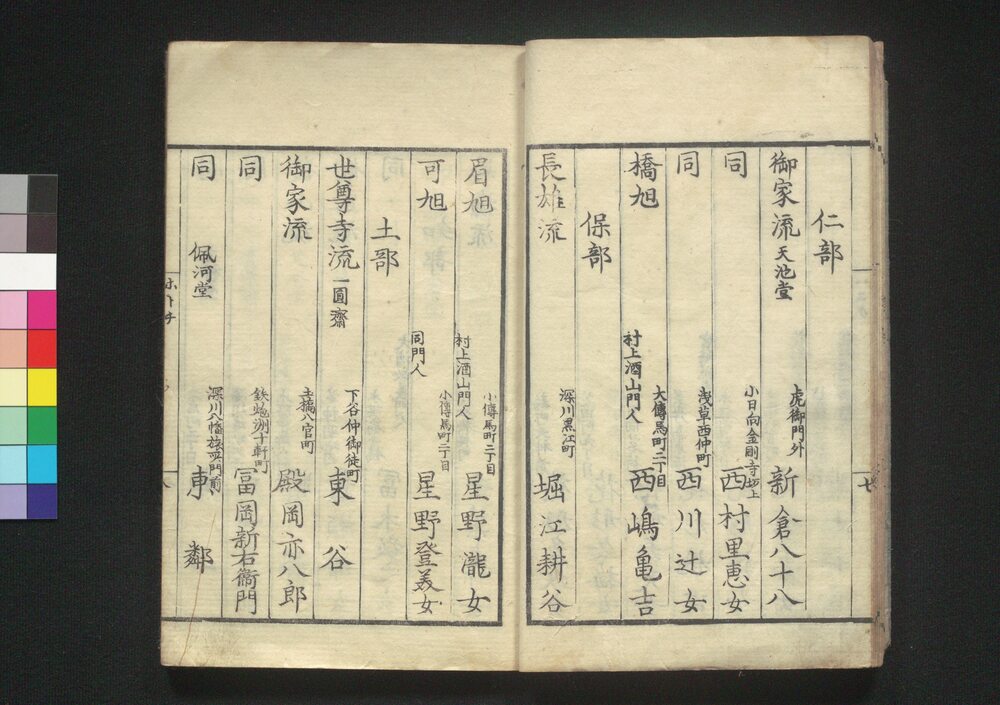 仁部
御家流 天池堂 虎御門外 新倉八十八
同 小日向金剛寺坂上 西村里恵女
同 浅草西仲町 西川辻女
橋旭 村上酒山門人 大傳馬町二丁目 西嶋亀吉
保部
長雄流 深川黒江町 堀江耕谷
七
眉旭 村上酒山門人 小傳馬町二丁目 星野瀧女
可旭 同門人 小傳馬町二丁目 星野登美女
土部
世尊寺流 一圓齋 下谷仲御徒町 東谷
御家流 八官町 殿岡亦八郎
同 鉄炮洲十軒町 冨岡新右衞門
同 佩河堂 深川八幡表門前 東鄰
にトチ